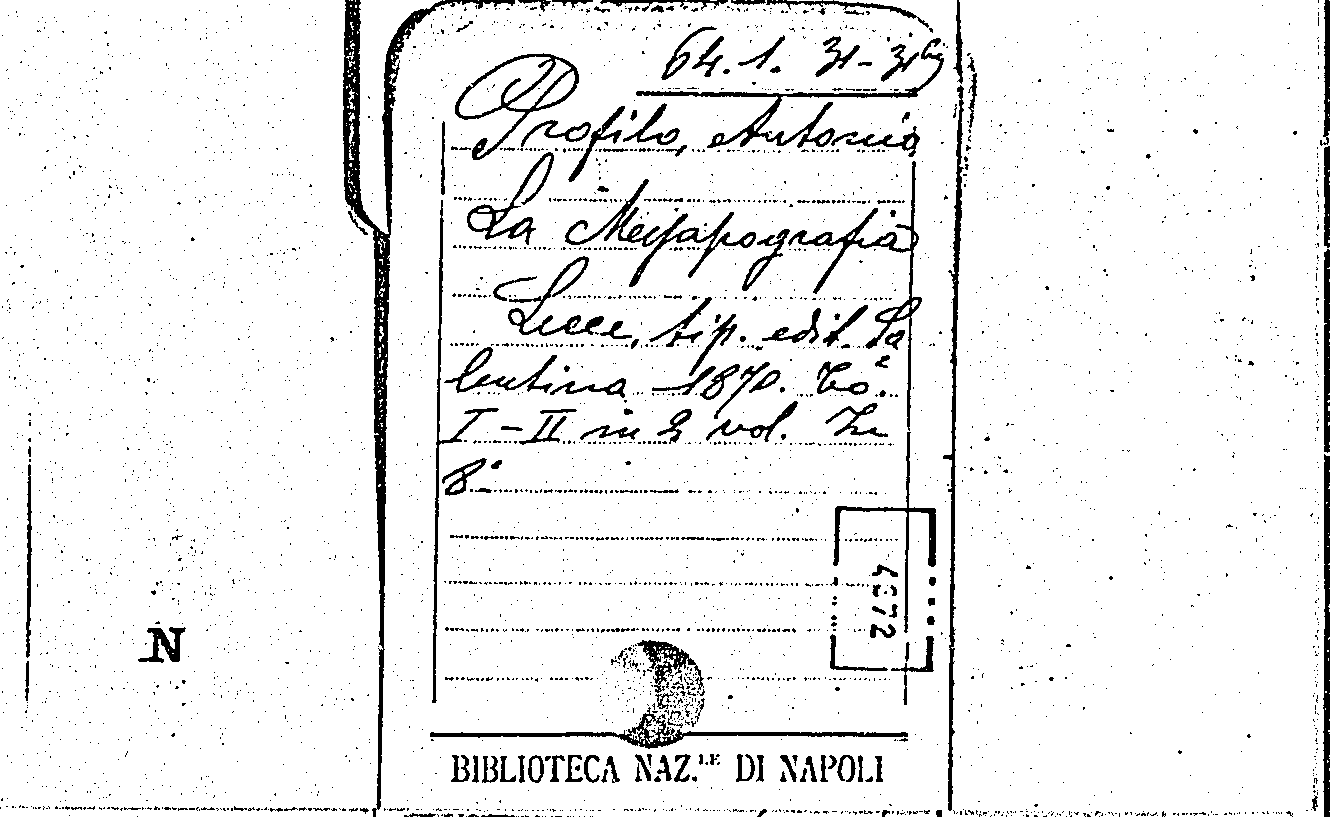 64.1. 31-31 bis
Profilo, Antonio
La Messapografia
Lecce, tip. edit. Sa
lentina 1870. To.
I-II in 2 vol. In
8°
4072
N
BIBLIOTECA NAZ.LE DI NAPOLI